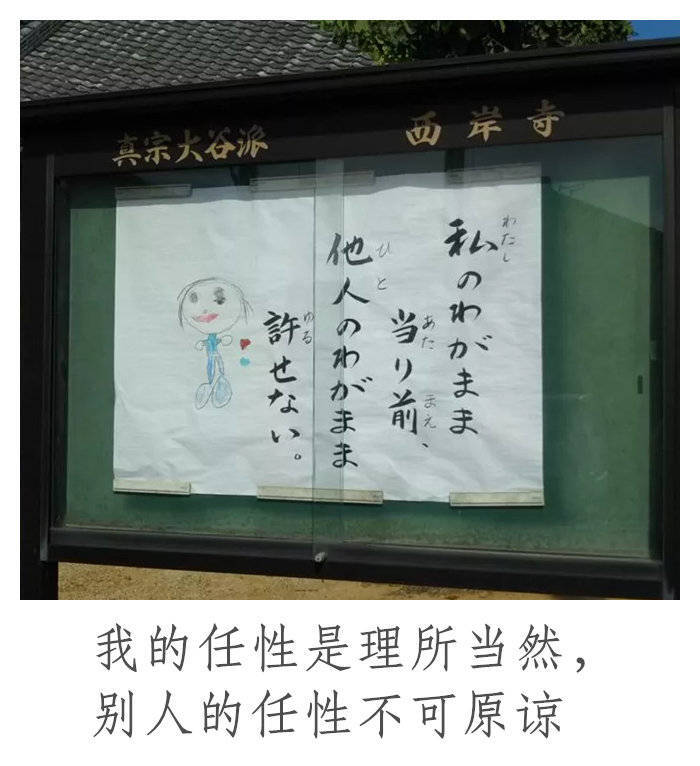 真宗大谷派
西岸寺
私のわがまま
わたし
当り前、
あた
まえ
他人のわがまま
ひと
許せない。
ゆる
我的任性是理所当然，
别人的任性不可原谅